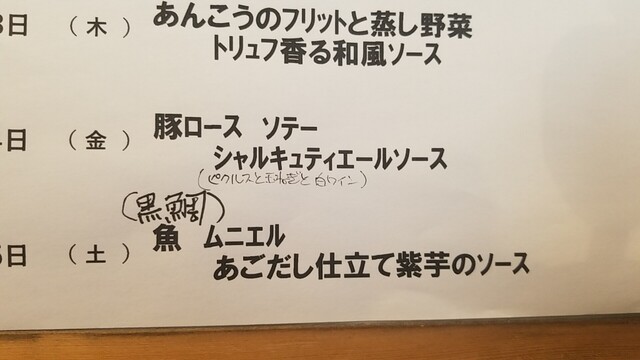 3日 （木） あんこうのフリットと蒸し野菜
トリュフ香る和風ソース
日 （金） 豚ロース ソテー
シャルキュティエールソース
(ピクルスと玉ねぎと白ワイン)
(黒鯛)
日 （土） 魚 ムニエル
あごだし仕立て紫芋のソース